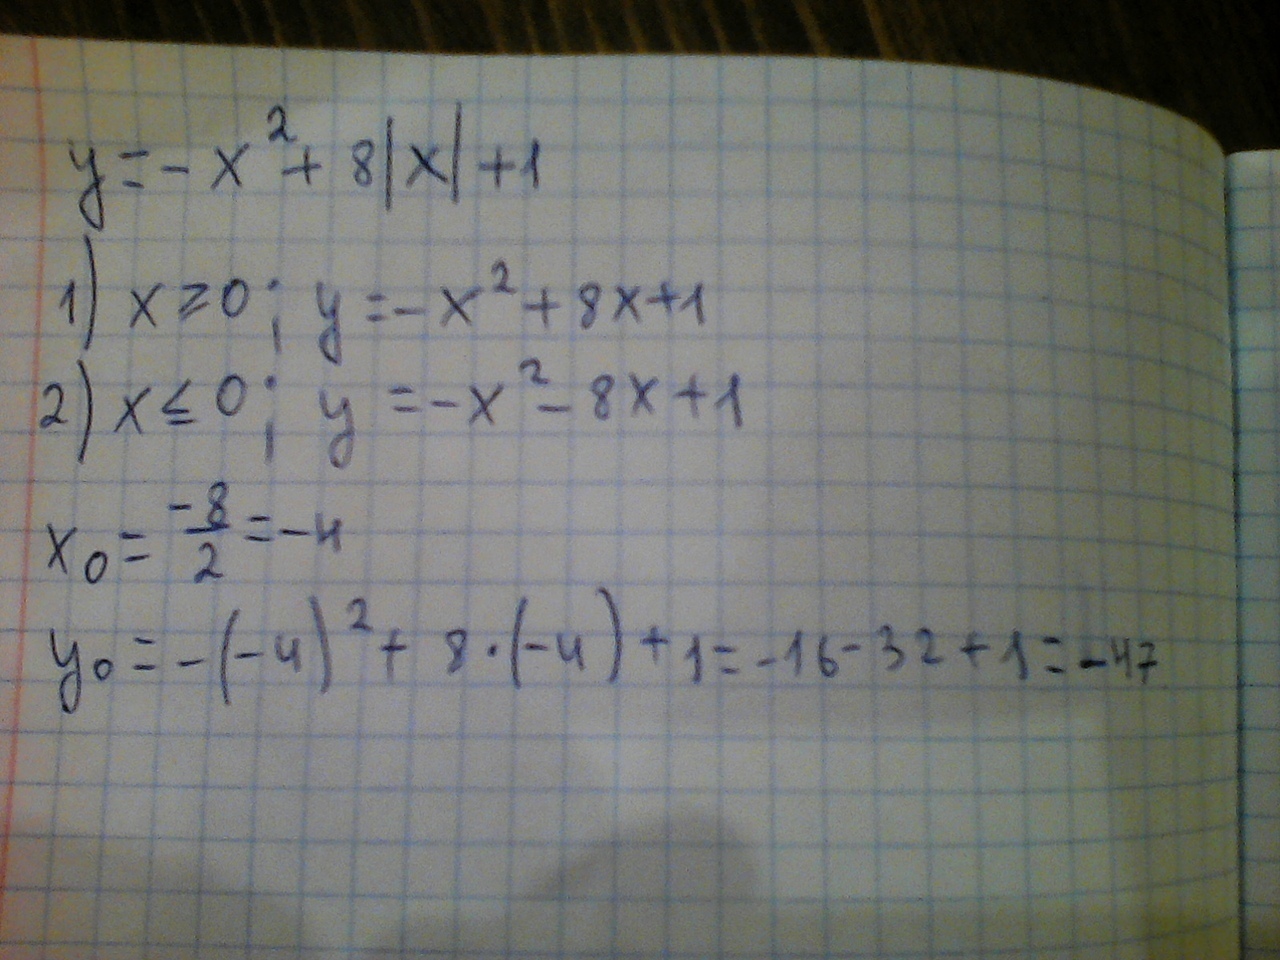 y = - x² + 8|x| + 1
1) x ≥ 0; y = - x² + 8x + 1
2) x ≤ 0; y = - x² - 8x + 1
x₀ = -8/2 = -4
y₀ = -(-4)² + 8·(-4) + 1 = -16 - 32 + 1 = -47